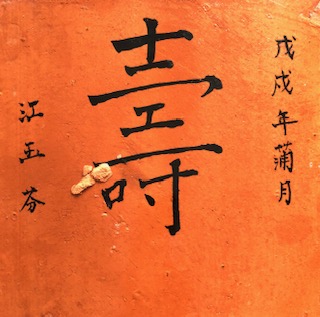 戊戌年蒲月
壽
江玉芬